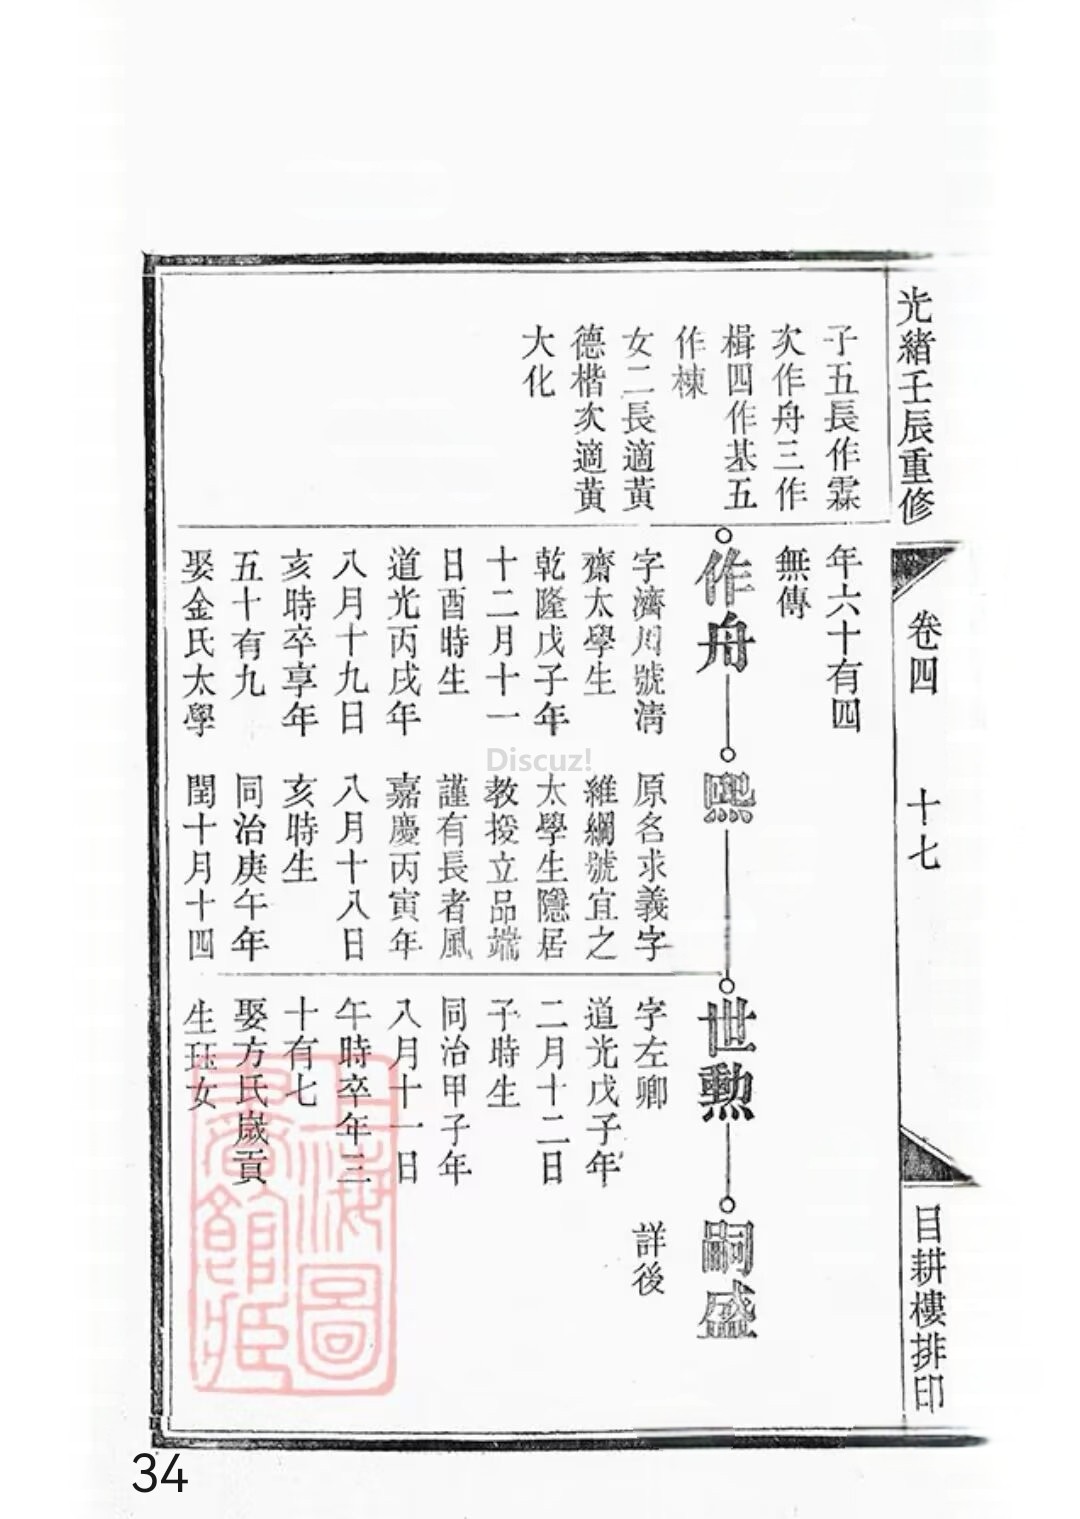 光緒壬辰重修
卷四
十七
目耕樓排印
子五長作霖
次作舟三作
楫四作基五
作棟
女二長適黃
德楷次適黃
大化
年六十有四
無傳
作舟
字濟川號清
齋太學生
乾隆戊子年
十二月十一
日酉時生
道光丙戌年
八月十九日
亥時卒享年
五十有九
娶金氏太學
熙
原名求義字
維綱號宜之
太學生隱居
教授立品端
謹有長者風
嘉慶丙寅年
八月十八日
亥時生
同治庚午年
閏十月十四
世勳
字左卿
道光戊子年
二月十二日
子時生
同治甲子年
八月十一日
午時卒年三
十有七
娶方氏歲貢
生珏女
嗣盛
詳後
上海圖
書館藏
Discuz!
34